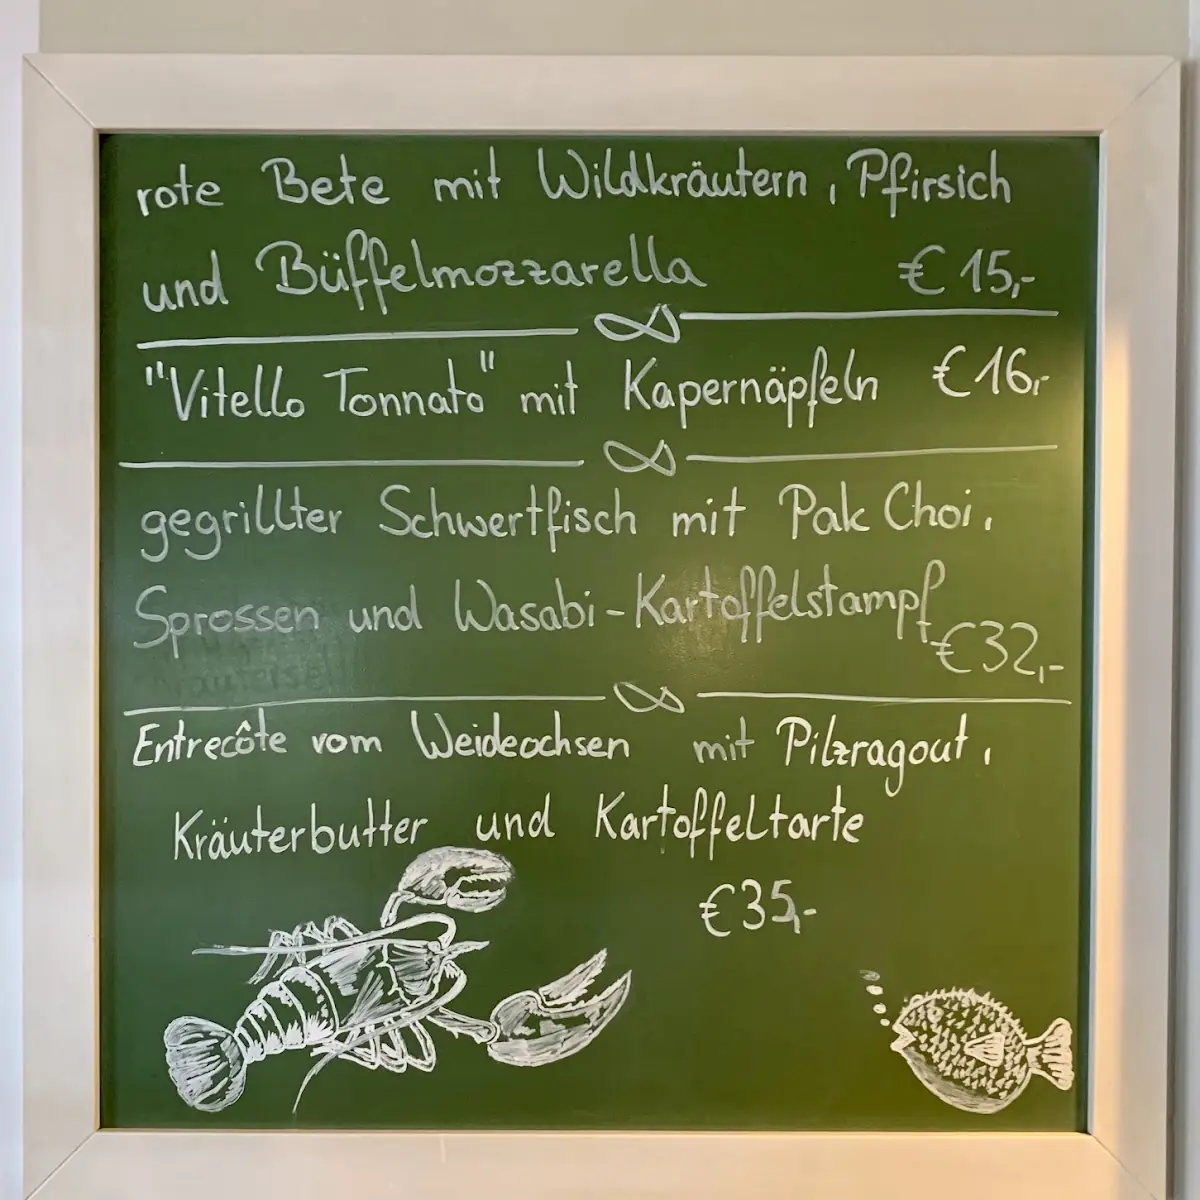 rote Bete mit Wildkräutern, Pfirsich
und Büffelmozzarella € 15,-
"Vitello Tonnato" mit Kapernäpfeln €16,-
gegrillter Schwertfisch mit Pak Choi,
Sprossen und Wasabi-Kartoffelstampf
€32,-
Entrecôte vom Weideochsen mit Pilzragout,
Kräuterbutter und Kartoffeltarte
€35,-